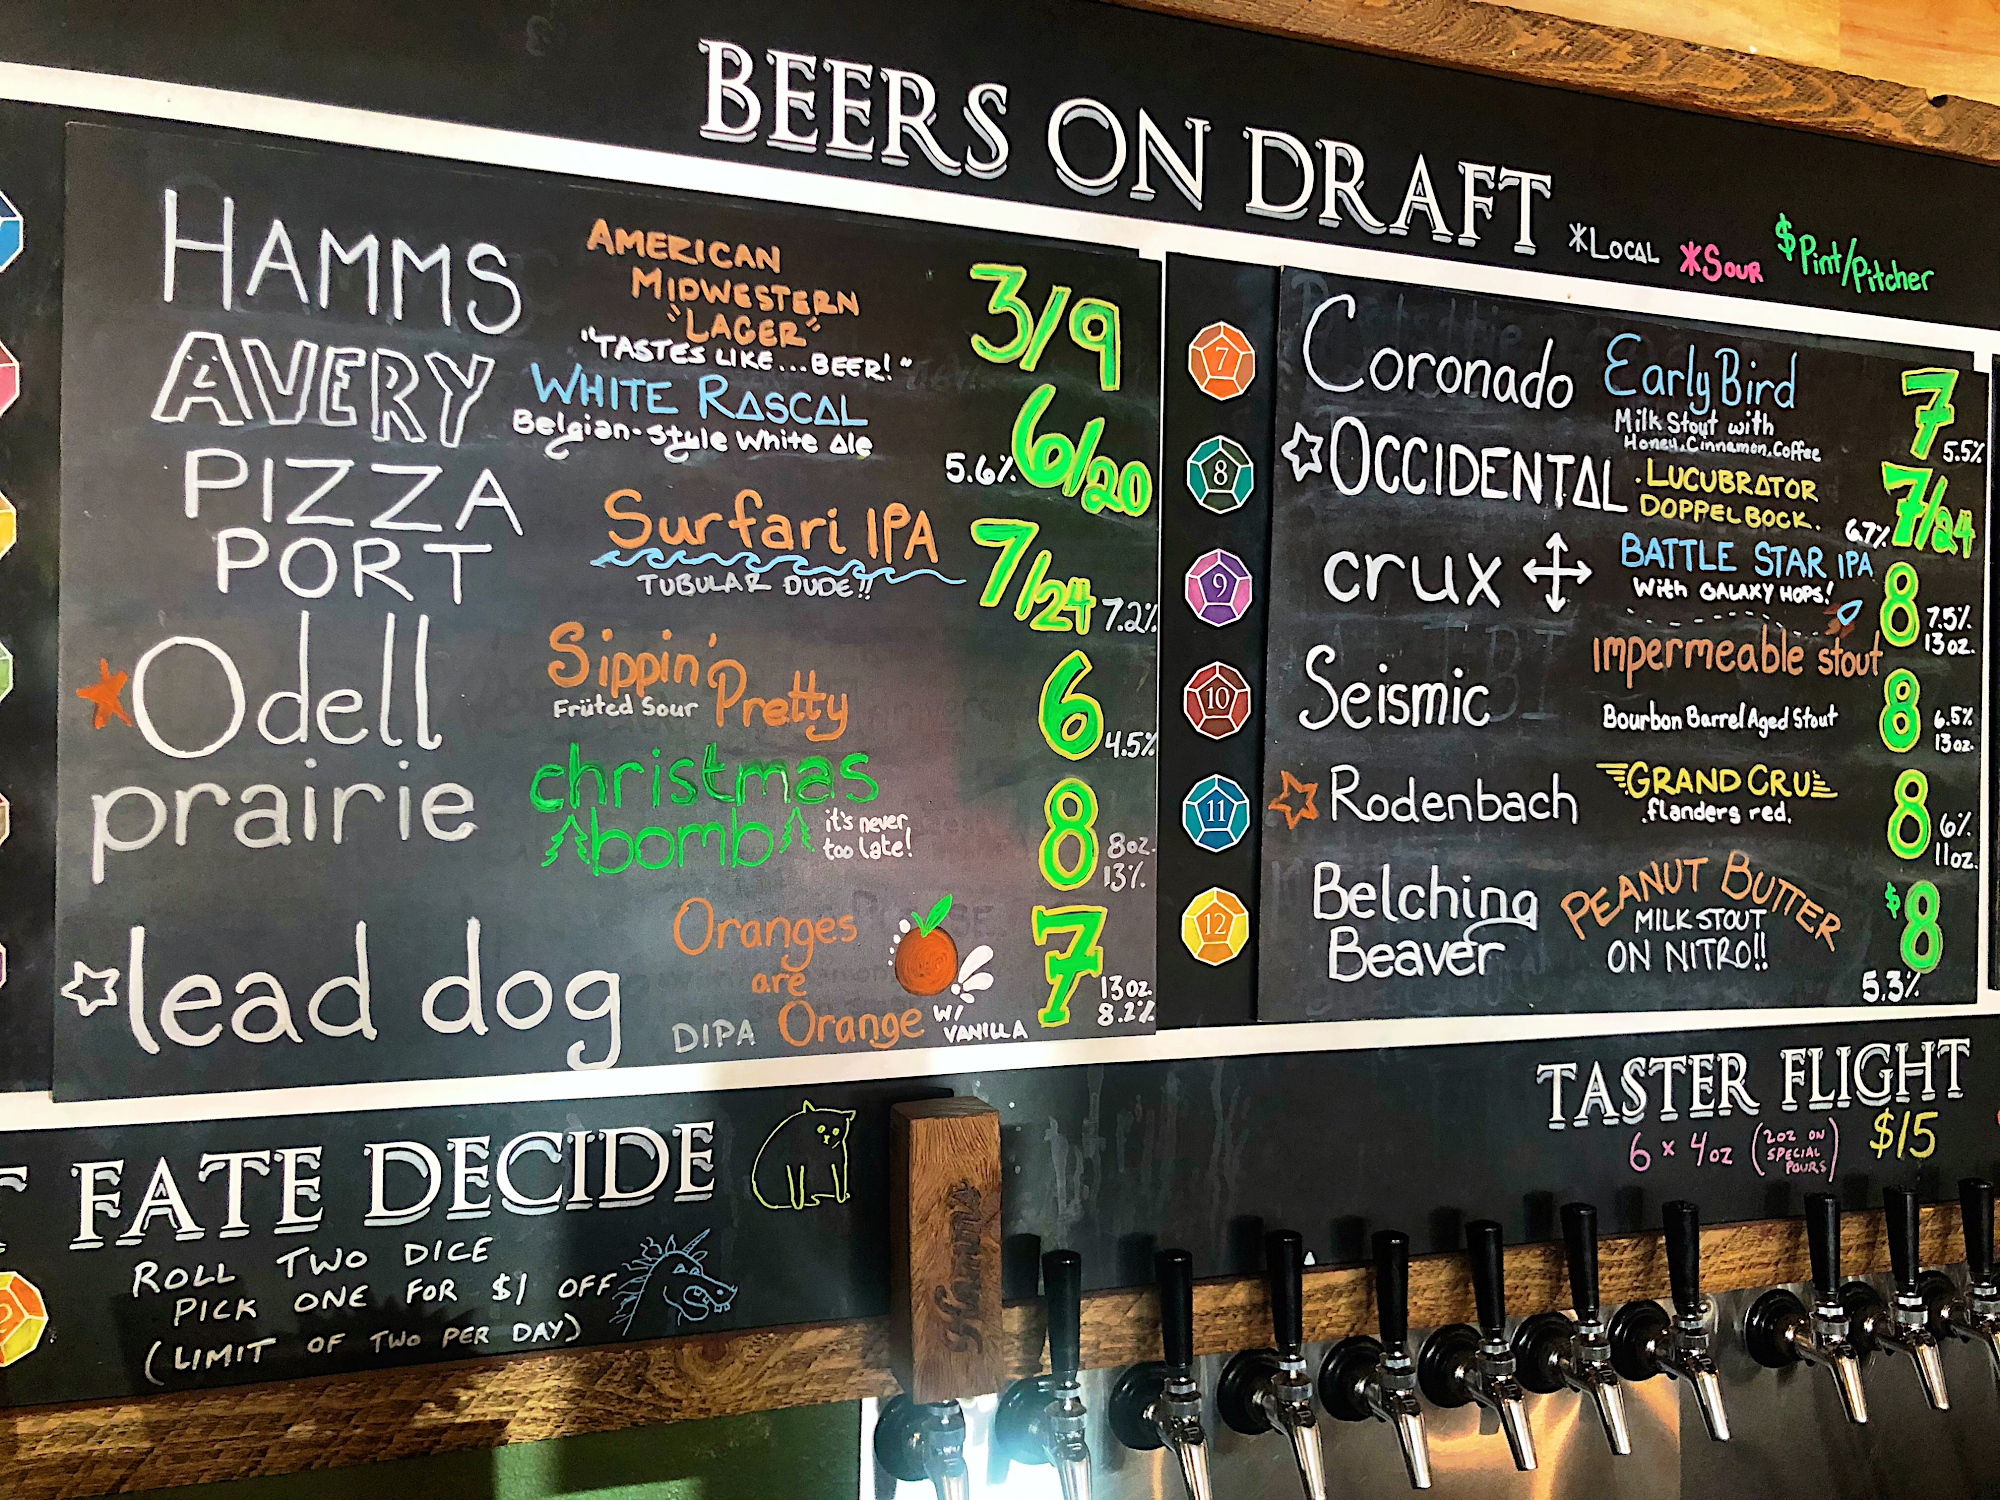 BEERS ON DRAFT
*LOCAL *SOUR $Pint/Pitcher
HAMMS
AMERICAN
MIDWESTERN
"LAGER"
"TASTES LIKE...BEER!"
3/9
AVERY
WHITE RASCAL
Belgian-Style White Ale
5.6% 6/20
PIZZA
PORT
Surfari IPA
TUBULAR DUDE!!
7/24 7.2%
Odell
Sippin'
Pretty
Früted Sour
6 4.5%
prairie
christmas
bomb
it's never
too late!
8 8oz.
13%
lead dog
Oranges
are
Orange
DIPA
W/
VANILLA
7 13oz.
8.2%
7
Coronado
Early Bird
Milk Stout with
Honey, Cinnamon, Coffee
7 5.5%
8
OCCIDENTAL
LUCUBRATOR
DOPPELBOCK.
6.7% 7/24
9
crux
BATTLE STAR IPA
With GALAXY HOPS!
8 7.5%
13oz.
10
Seismic
Impermeable stout
Bourbon Barrel Aged Stout
8 6.5%
13oz.
11
Rodenbach
GRAND CRU
flanders red.
8 6%
11oz.
12
Belching
Beaver
PEANUT BUTTER
MILK STOUT
ON NITRO!!
$8
5.3%
FATE DECIDE
ROLL TWO DICE
PICK ONE FOR $1 OFF
(LIMIT OF TWO PER DAY)
TASTER FLIGHT
6 x 4oz (2OZ ON
SPECIAL
POURS) $15